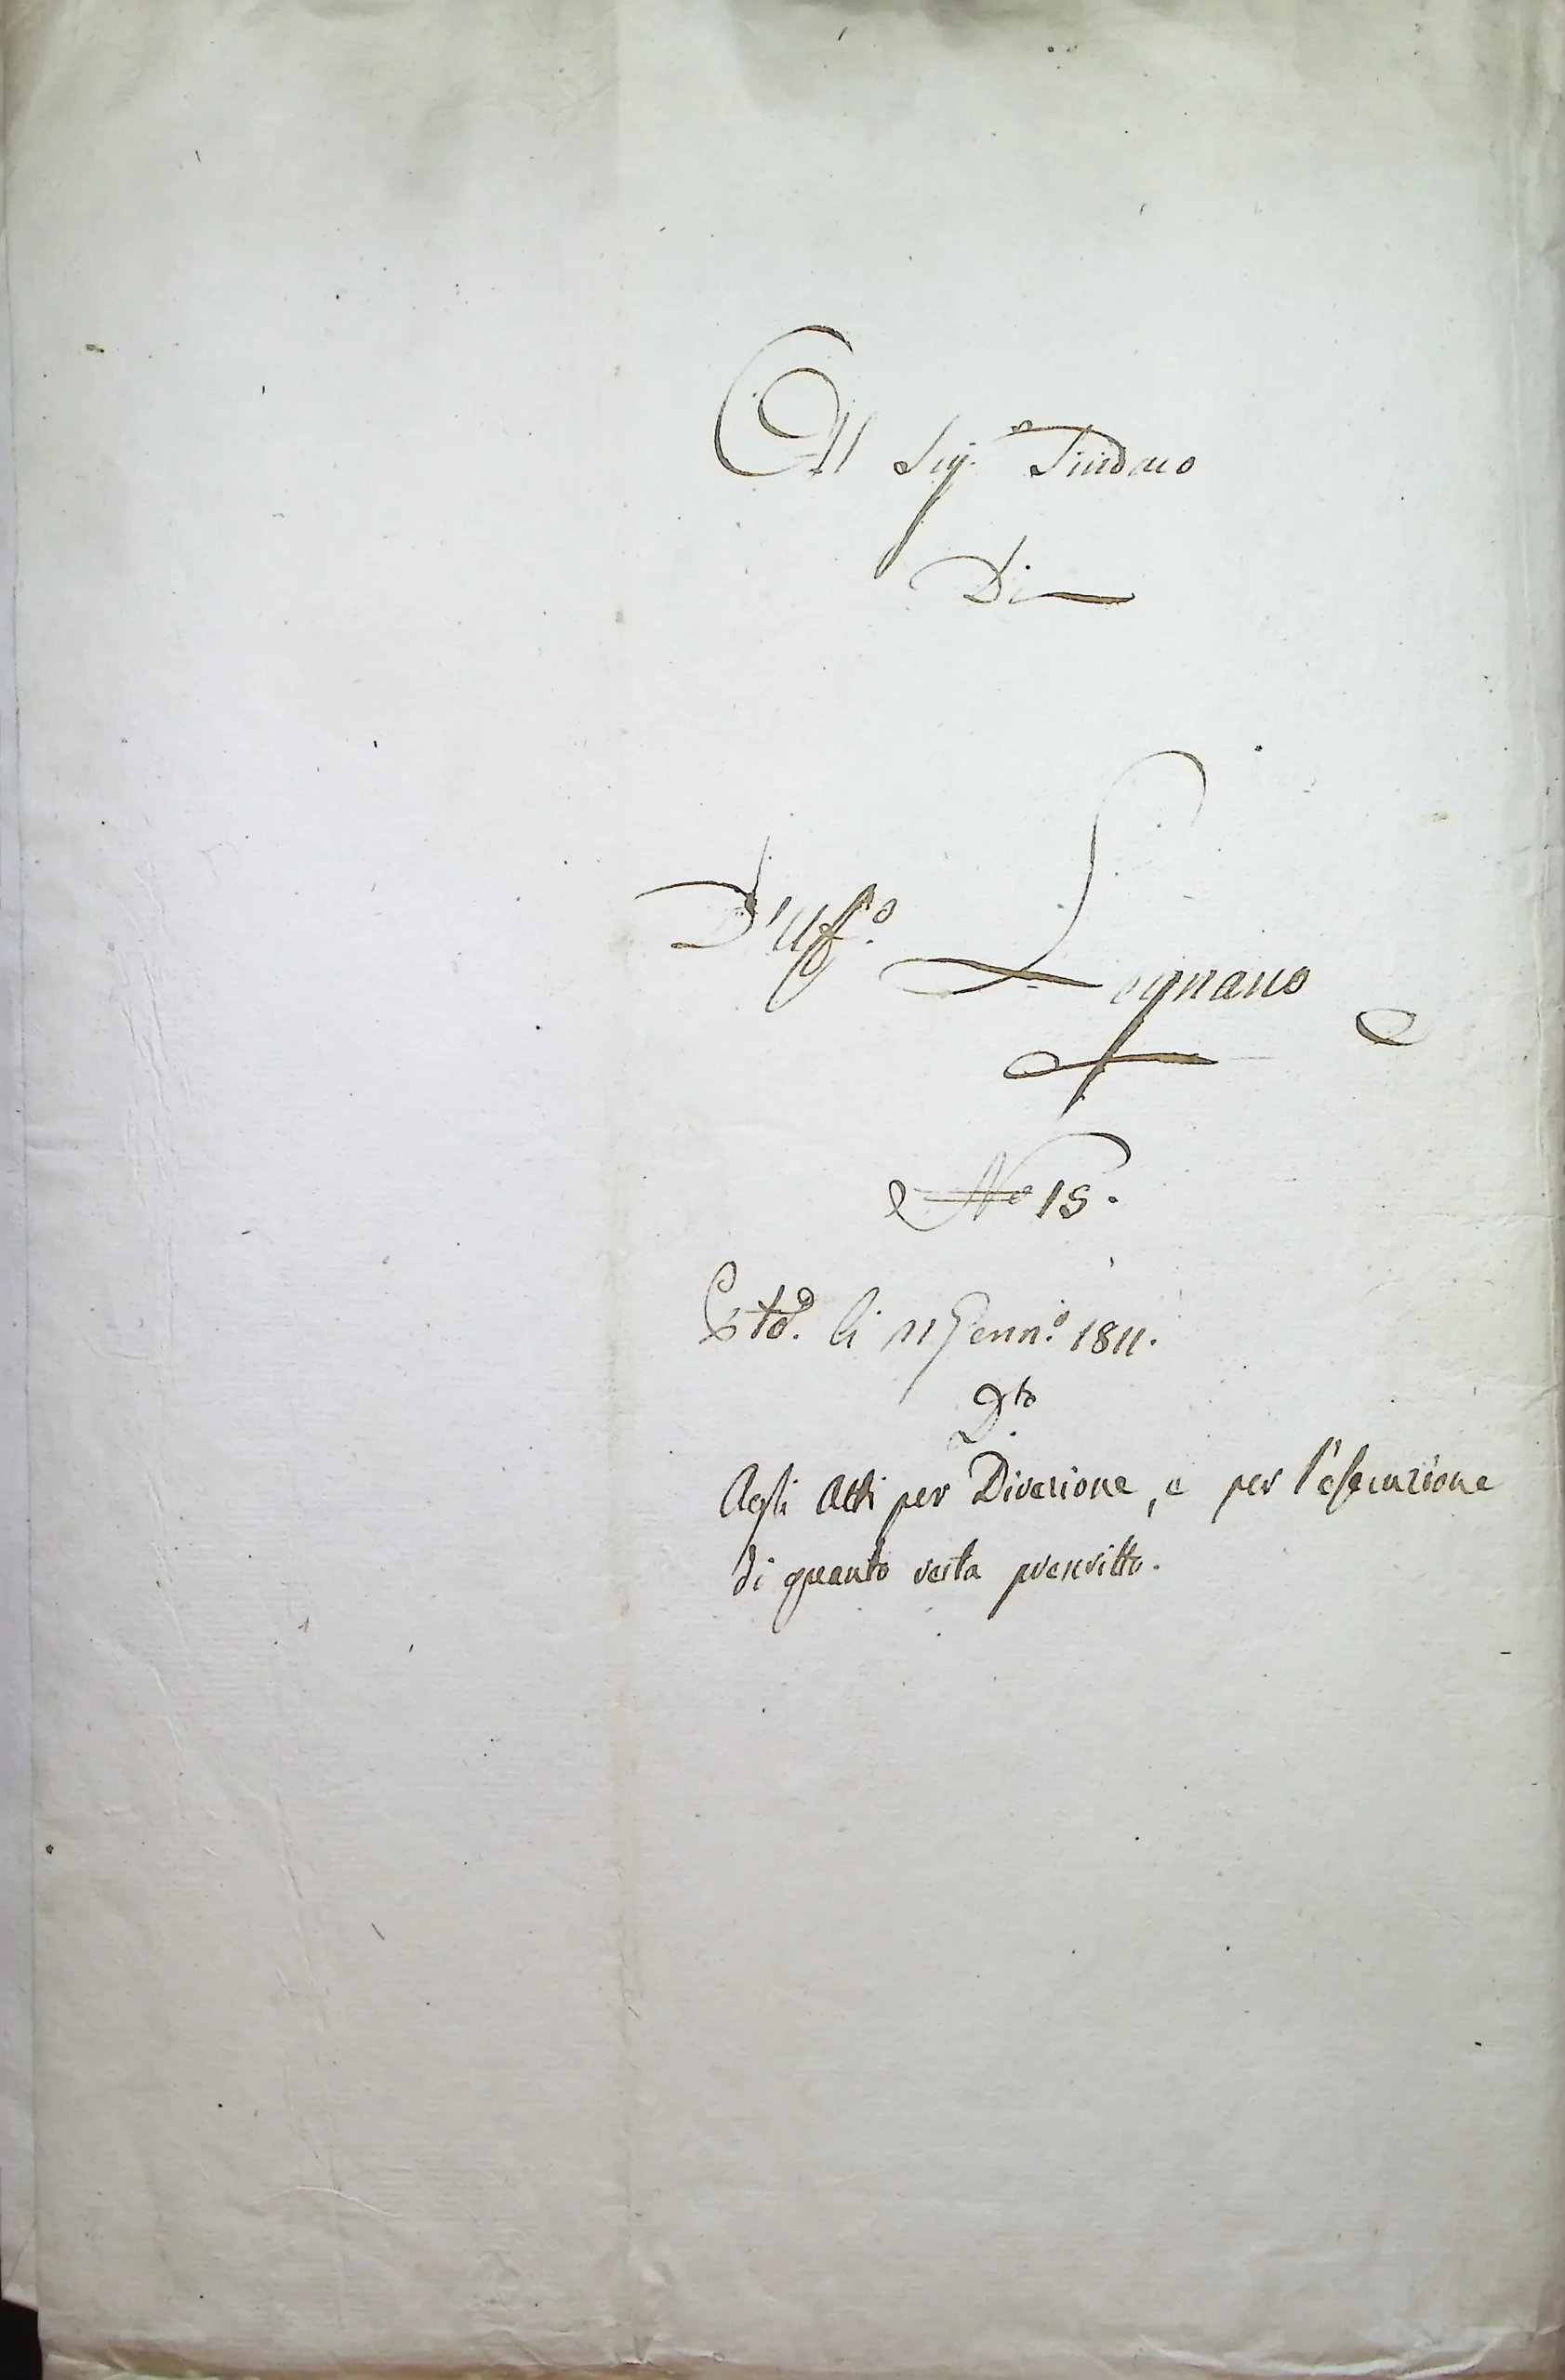 Al Sig.r Sindaco
Di
D'Uff.o Legnano
No 15.
Pntd. li 11 Genn.o 1811.
Dto
Agli Atti per Direzione, e per l'esecuzione
di quanto resta prescritto.